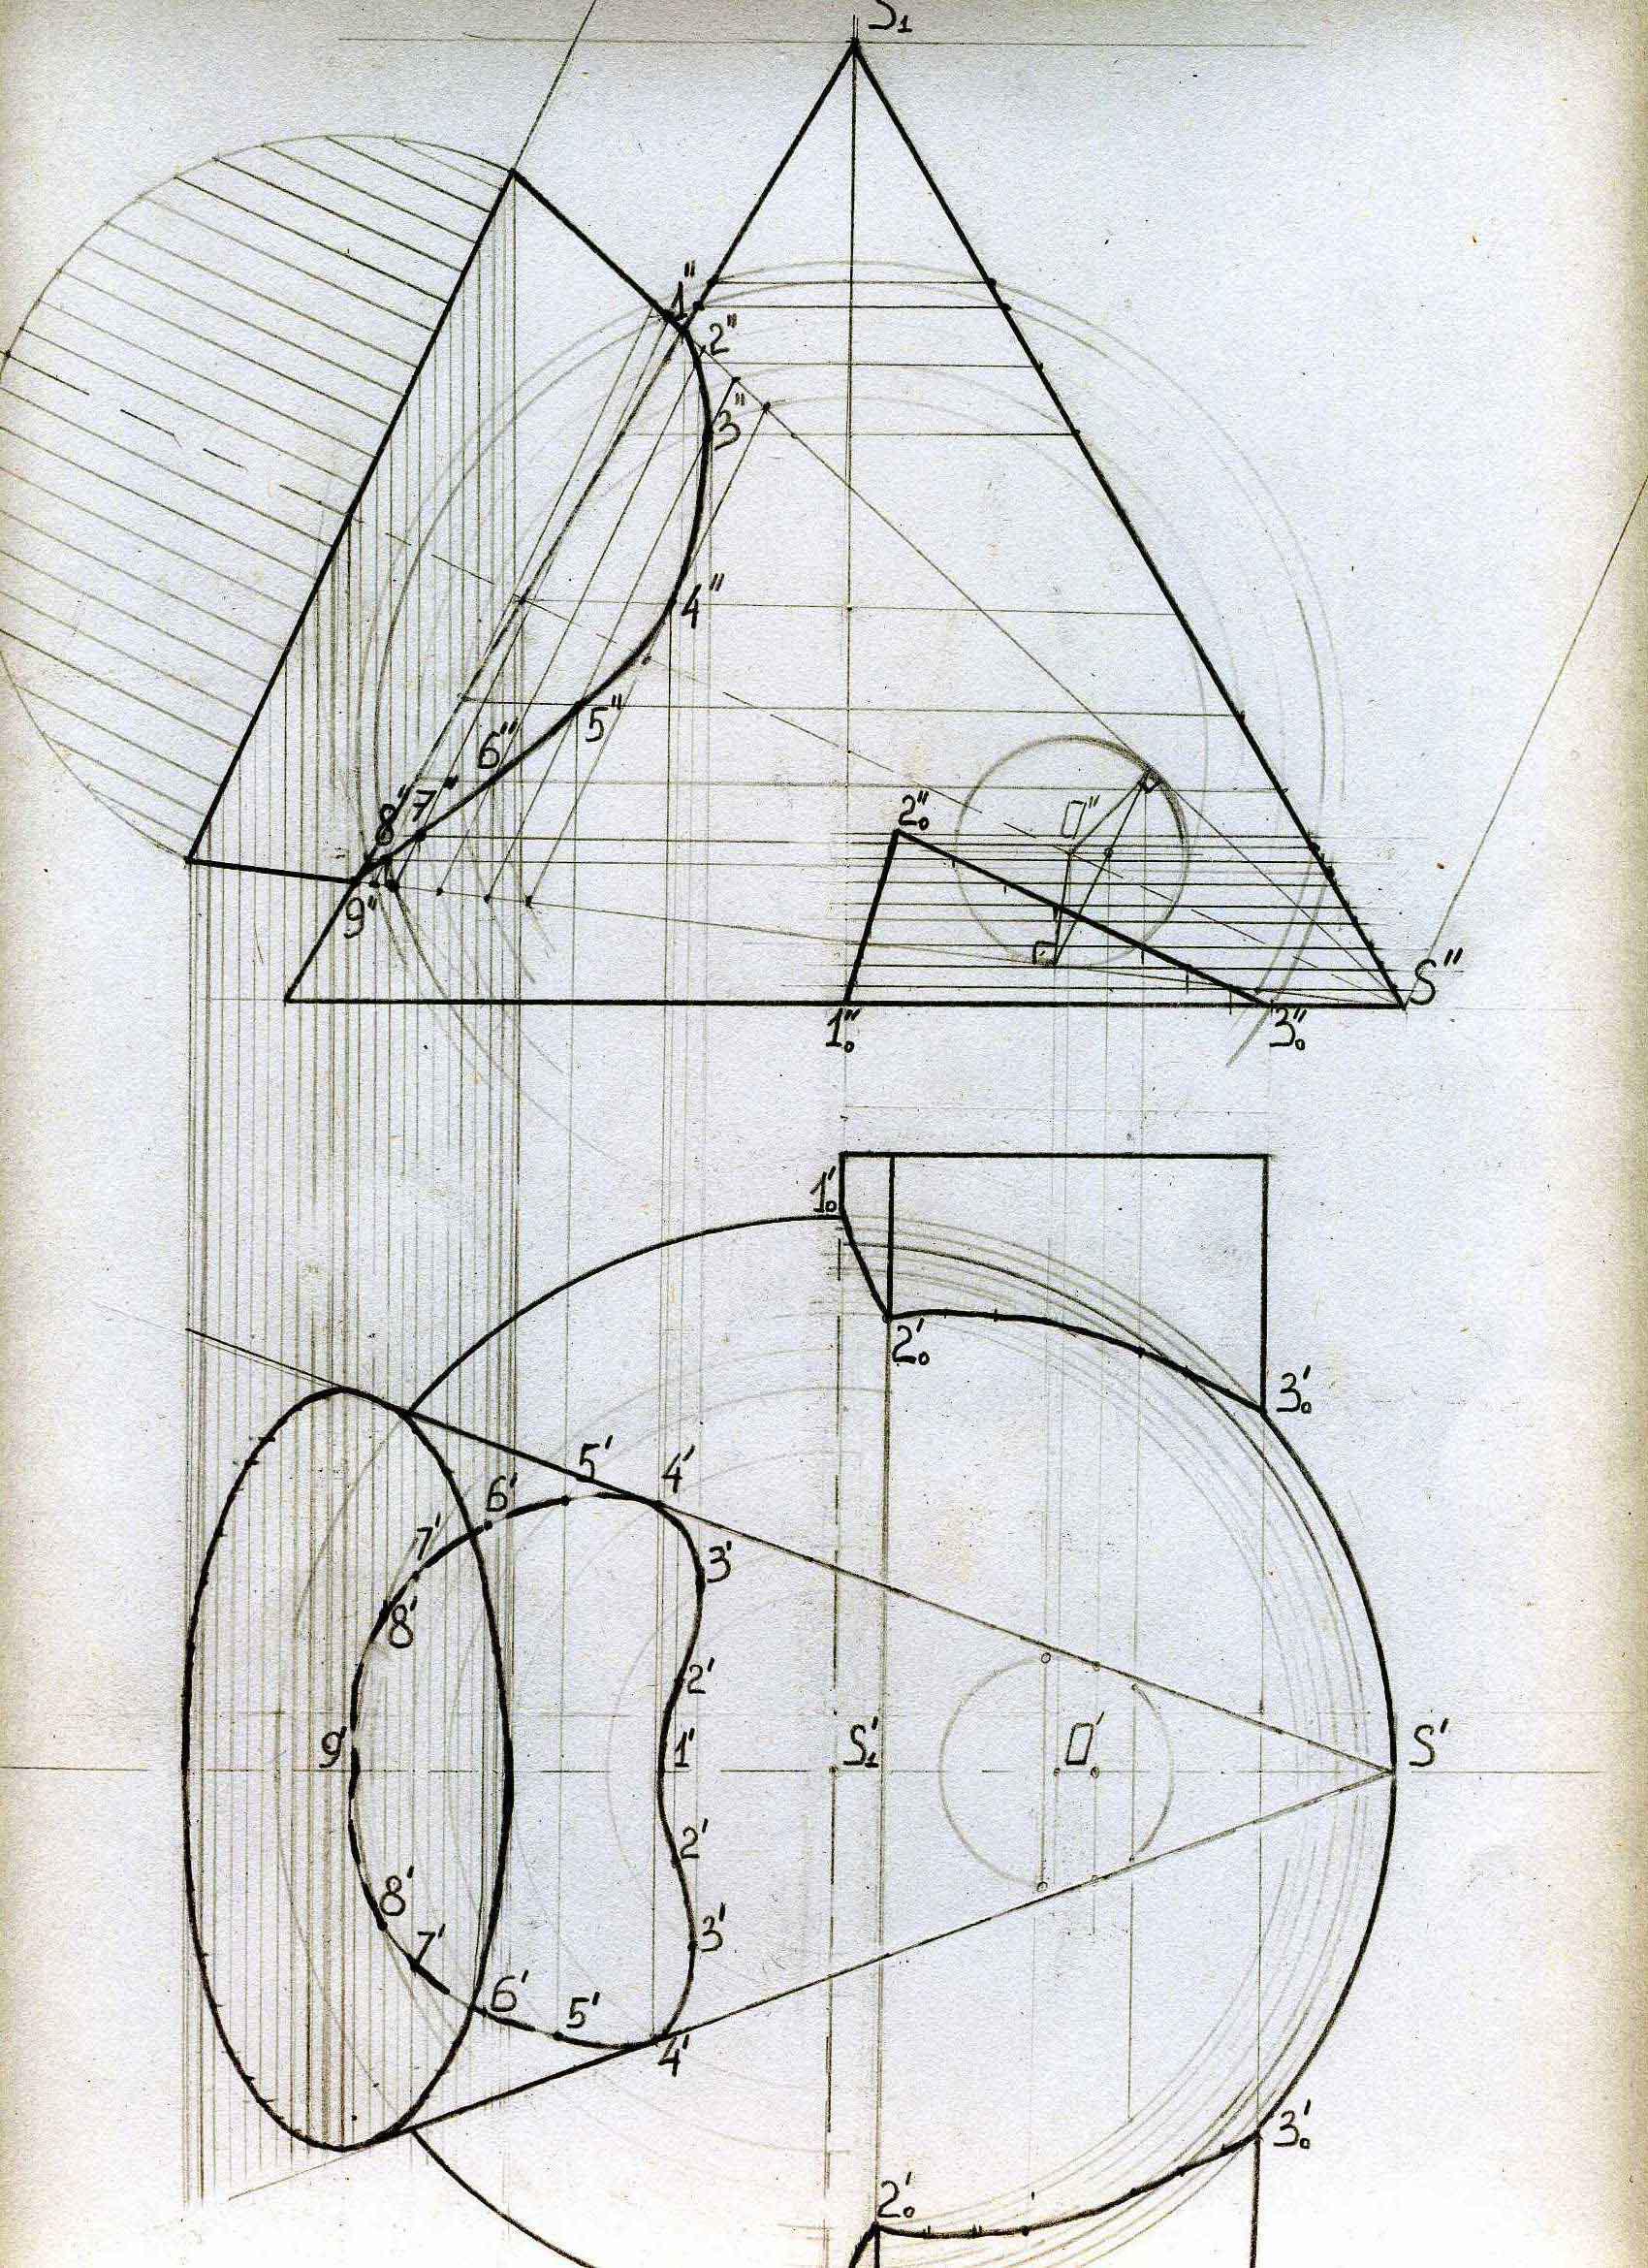 S₁
1"
2"
3"
4"
5"
6"
7
8"
9"
2₀"
O"
S"
1₀"
3₀"
1₀'
2₀'
3₀'
5'
4'
6'
7'
3'
8'
2'
9'
1'
S₁'
O'
S'
2'
8'
3'
7'
6'
5'
4'
3₀'
2₀'